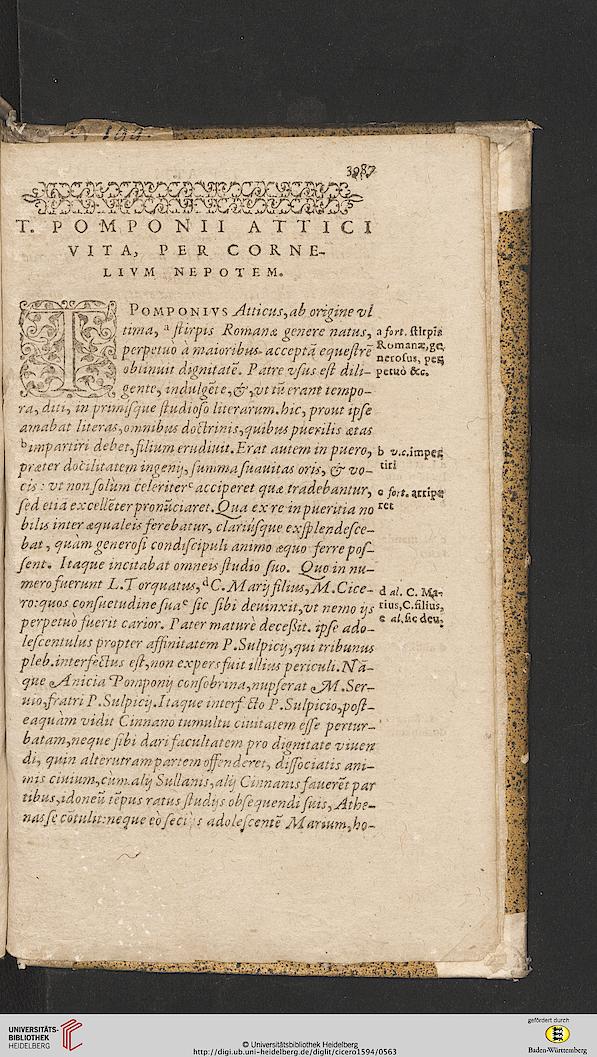 3987
T. POMPONII ATTICI
VITA, PER CORNE-
LIVM NEPOTEM.
T POMPONIVS Atticus, ab origine vl
tima, ᵃ stirpis Romanæ genere natus,
perpetuo à maioribus acceptã equestrẽ
obtinuit dignitatẽ. Patre vsus est dili-
gente, indulgẽte, &, vt tũ erant tempo-
ra, diti, in primisque studioso literarum. hic, prout ipse
amabat literas, omnibus doctrinis, quibus puerilis ætas
ᵇimpartiri debet, filium erudiuit. Erat autem in puero,
præter docilitatem ingenij, summa suauitas oris, & vo-
cis: vt non solùm celeriterᶜ acciperet quæ tradebantur,
sed etiã excellẽter pronũciaret. Qua ex re in pueritia no
bilis inter æqualeis ferebatur, clariùsque exsplendesce-
bat, quàm generosi condiscipuli animo æquo ferre pos-
sent. Itaque incitabat omneis studio suo. Quo in nu-
mero fuerunt L. Torquatus, ᵈC. Marij filius, M. Cice-
ro: quos consuetudine suaᵉ sic sibi deuinxit, vt nemo ijs
perpetuò fuerit carior. Pater maturè decessit. ipse ado-
lescentulus propter affinitatem P. Sulpicij, qui tribunus
pleb. interfectus est, non expers fuit illius periculi. Nã-
que Anicia Pomponij consobrina, nupserat M. Ser-
uio, fratri P. Sulpicij. Itaque interfecto P. Sulpicio, post-
eaquàm vidit Cinnano tumultu ciuitatem esse pertur-
batam, neque sibi dari facultatem pro dignitate viuen
di, quin alterutram partem offenderet, dissociatis ani-
mis ciuium, cùm alij Sullanis, alij Cinnanis fauerẽt par
tibus, idoneũ tẽpus ratus studijs obsequendi suis, Athe-
nas se cõtulit: neque eò seciùs adolescentẽ Marium, ho-
a fort. stirpis
Romanæ, ge-
nerosus, per
petuò &c.
b v.c. imper
tiri
c fort. arripe
ret
d al. C. Ma-
rius, C. filius,
e al. sic deu.
UNIVERSITÄTS-
BIBLIOTHEK
HEIDELBERG
© Universitätsbibliothek Heidelberg
http://digi.ub.uni-heidelberg.de/diglit/cicero1594/0563
gefördert durch
Baden-Württemberg